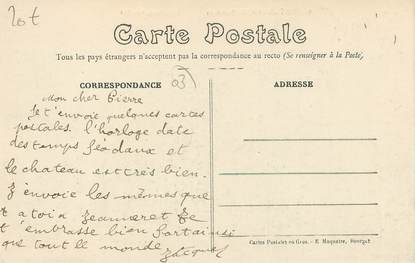 20t
Carte Postale
Tous les pays étrangers n'acceptent pas la correspondance au recto (Se renseigner à la Poste).
CORRESPONDANCE
03
ADRESSE
Mon cher Pierre
Je t'envoie quelques cartes
postales. l'horloge date
des temps féodaux et
le chateau est très bien.
J'envoie les mêmes que
t a toi a Jeanneret Je
t'embrasse bien fort ainsi
que tout le monde Jacques
Cartes Postales en Gros. - E. Maquaire, Bourges